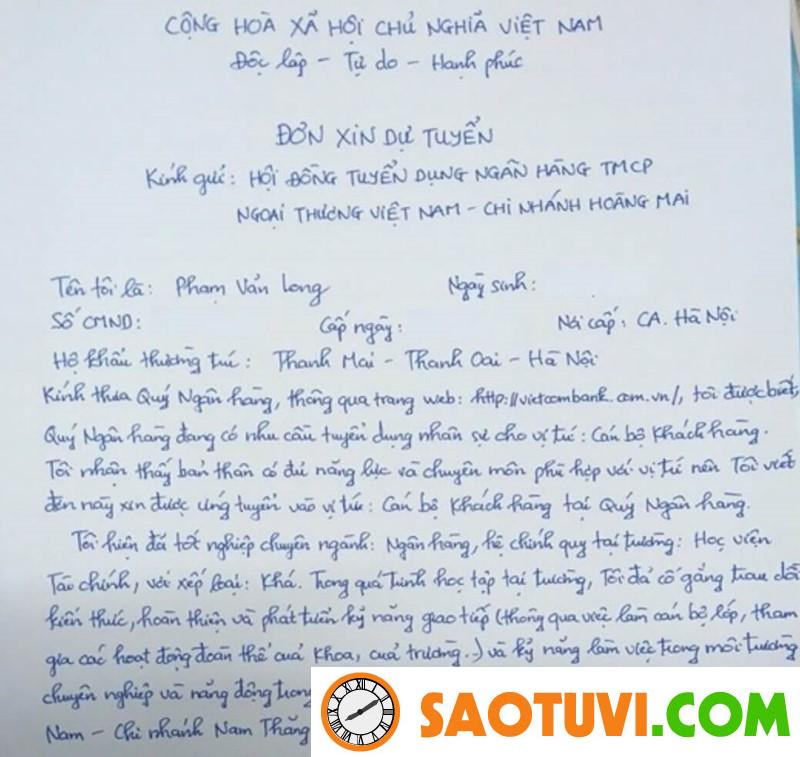 CỘNG HOÀ XÃ HỘI CHỦ NGHĨA VIỆT NAM
Độc lập - Tự do - Hạnh phúc
ĐƠN XIN DỰ TUYỂN
Kính gửi: HỘI ĐỒNG TUYỂN DỤNG NGÂN HÀNG TMCP
NGOẠI THƯƠNG VIỆT NAM - CHI NHÁNH HOÀNG MAI
Tên tôi là: Phạm Văn Long Ngày sinh:
Số CMND: Cấp ngày: Nơi cấp: CA. Hà Nội
Hộ khẩu thường trú: Thanh Mai - Thanh Oai - Hà Nội
Kính thưa Quý Ngân hàng, thông qua trang web: http://vietcombank.com.vn/, tôi được biết
Quý Ngân hàng đang có nhu cầu tuyển dụng nhân sự cho vị trí: Cán bộ Khách hàng.
Tôi nhận thấy bản thân có đủ năng lực và chuyên môn phù hợp với vị trí nên Tôi viết
đơn này xin được ứng tuyển vào vị trí: Cán bộ Khách hàng tại Quý Ngân hàng.
Tôi hiện đã tốt nghiệp chuyên ngành: Ngân hàng, hệ chính quy tại trường: Học viện
Tài chính, với xếp loại: Khá. Trong quá trình học tập tại trường, Tôi đã cố gắng trau dồi
kiến thức, hoàn thiện và phát triển kỹ năng giao tiếp (thông qua việc làm cán bộ lớp, tham
gia các hoạt động đoàn thể của khoa, của trường..) và kỹ năng làm việc trong môi trường
chuyên nghiệp và năng động trong
Nam - Chi nhánh Nam Thăng
SAOTUVI.COM